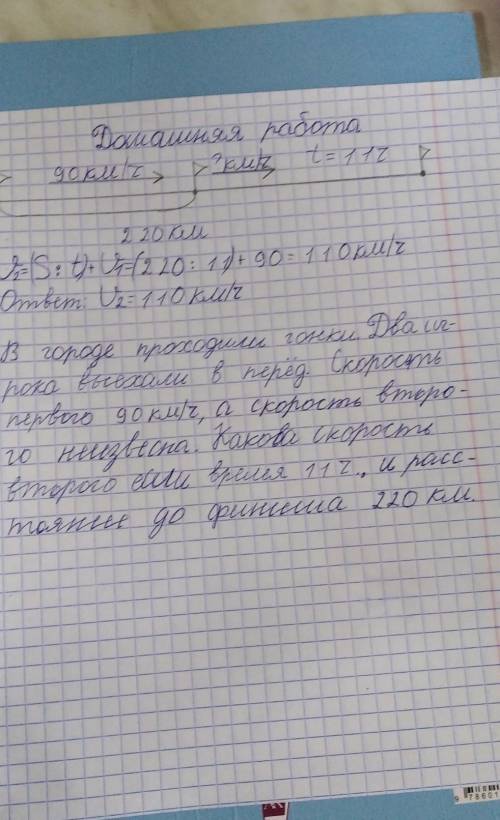 Домашняя работа
90 км/ч ? км/ч t = 11 ч
220 км
V₂=(S:t)+V₁=(220:11)+90=110 км/ч
Ответ: V₂=110 км/ч
В городе проходили гонки. Два иг-
рока выехали в перёд. Скорость
первого 90 км/ч, а скорость второ-
го неизвесна. Какова скорость
второго если время 11 ч., и расс-
тояние до финиша 220 км.
9 78601